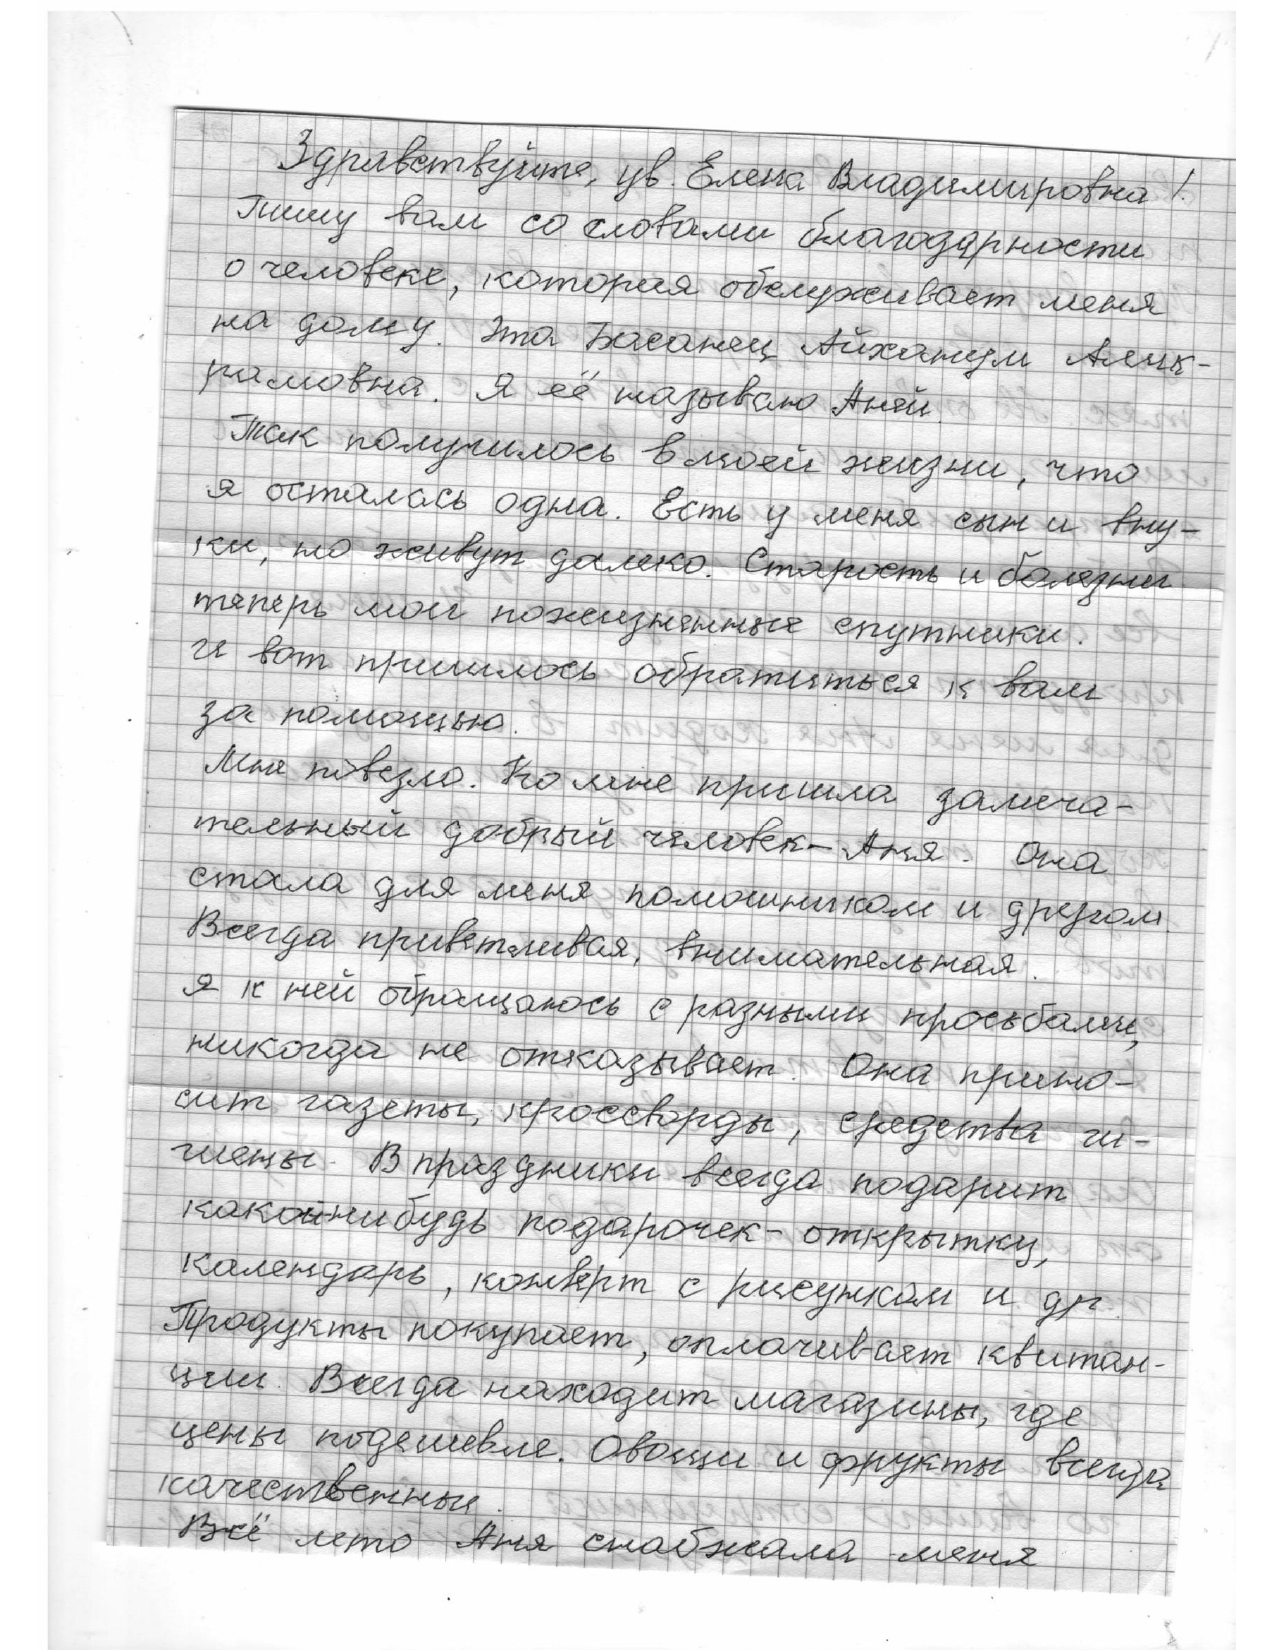 Здравствуйте, ув. Елена Владимировна!
Пишу вам со словами благодарности
о человеке, которая обслуживает меня
на дому. Эта Басанец Айханум Алик-
рамовна. Я её называю Аней.
Так получилось в моей жизни, что
я осталась одна. Есть у меня сын и вну-
ки, но живут далеко. Старость и болезни
теперь мои пожизненные спутники.
И вот пришлось обратиться к вам
за помощью.
Мне повезло. Ко мне пришла замеча-
тельный добрый человек - Аня. Она
стала для меня помошником и другом.
Всегда приветливая, внимательная.
Я к ней обращаюсь с разными просьбами,
никогда не отказывает. Она прино-
сит газеты, кроссворды, средства ги-
гиены. В праздники всегда подарит
какойнибудь подарочек - открытку,
календарь, конверт с рисунком и др.
Продукты покупает, оплачивает квитан-
ции. Всегда находит магазины, где
цены подешевле. Овощи и фрукты всегда
качественные.
Всё лето Аня снабжала меня